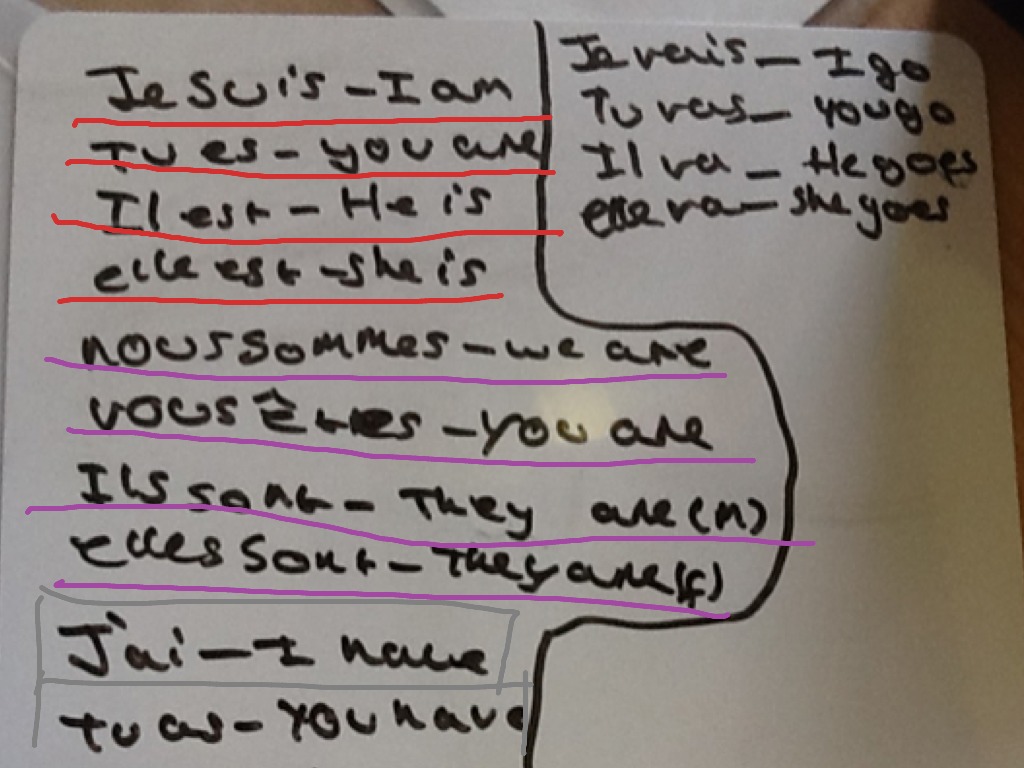 Je suis - I am
Tu es - you are
Il est - He is
elle est - she is
nous sommes - we are
vous êtes - you are
Ils sont - They are (m)
elles sont - They are (f)
J'ai - I have
tu as - you have
Je vais - I go
Tu vas - you go
Il va - He goes
elle va - she goes